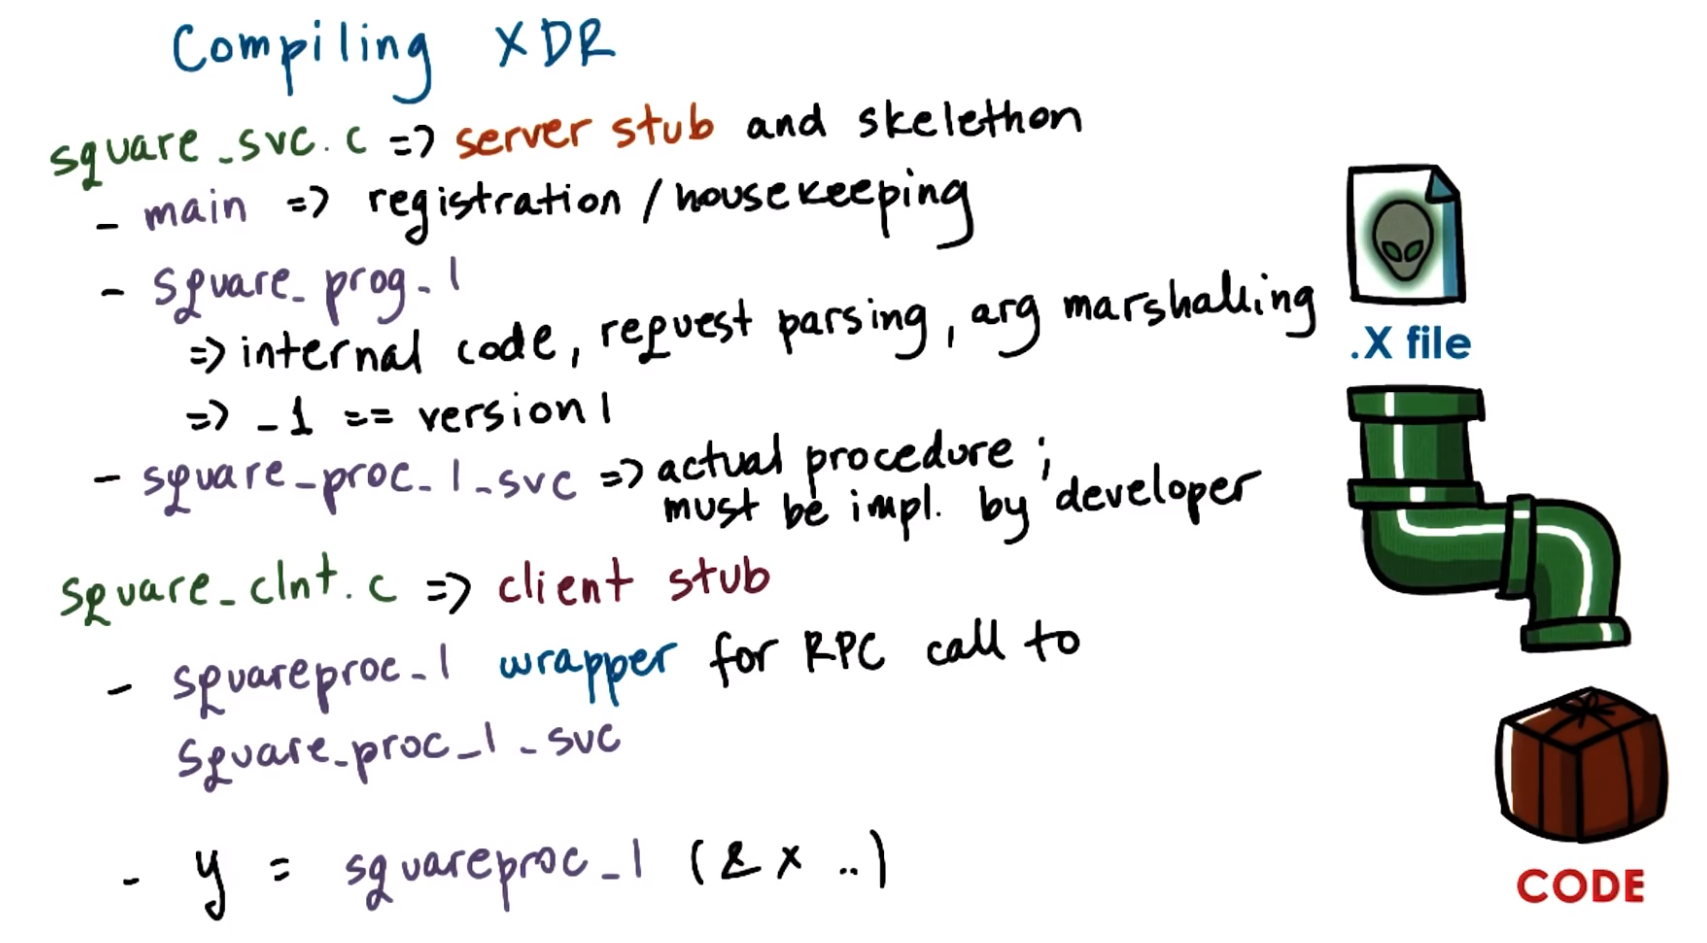 Compiling XDR
square_svc.c => server stub and skelethon
- main => registration / housekeeping
- square_prog_1
=> internal code, request parsing, arg marshalling
=> _1 == version 1
- square_proc_1_svc => actual procedure;
must be impl. by developer
square_clnt.c => client stub
- squareproc_1 wrapper for RPC call to
square_proc_1_svc
- y = squareproc_1 (& x ..)
.X file
CODE